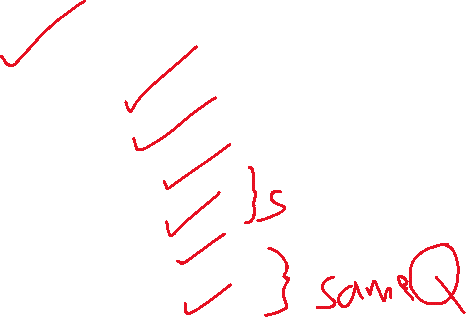 ✓
✓
✓
✓
✓ } S
✓
✓ } same Q